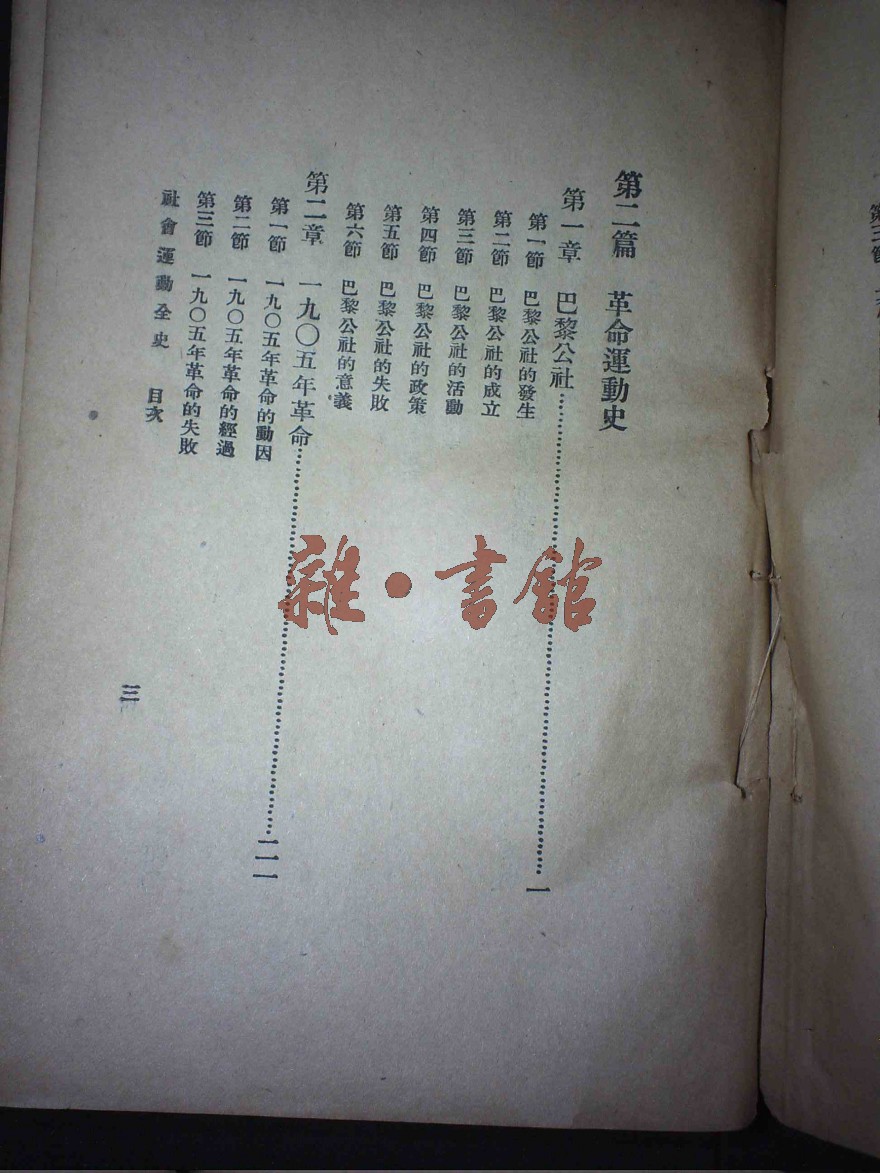 第二篇 革命運動史
第一章 巴黎公社……一
第一節 巴黎公社的發生
第二節 巴黎公社的成立
第三節 巴黎公社的活動
第四節 巴黎公社的政策
第五節 巴黎公社的失敗
第六節 巴黎公社的意義
第二章 一九〇五年革命……
第一節 一九〇五年革命的動因
第二節 一九〇五年革命的經過
第三節 一九〇五年革命的失敗
社會運動全史 目次
三
雜·書館